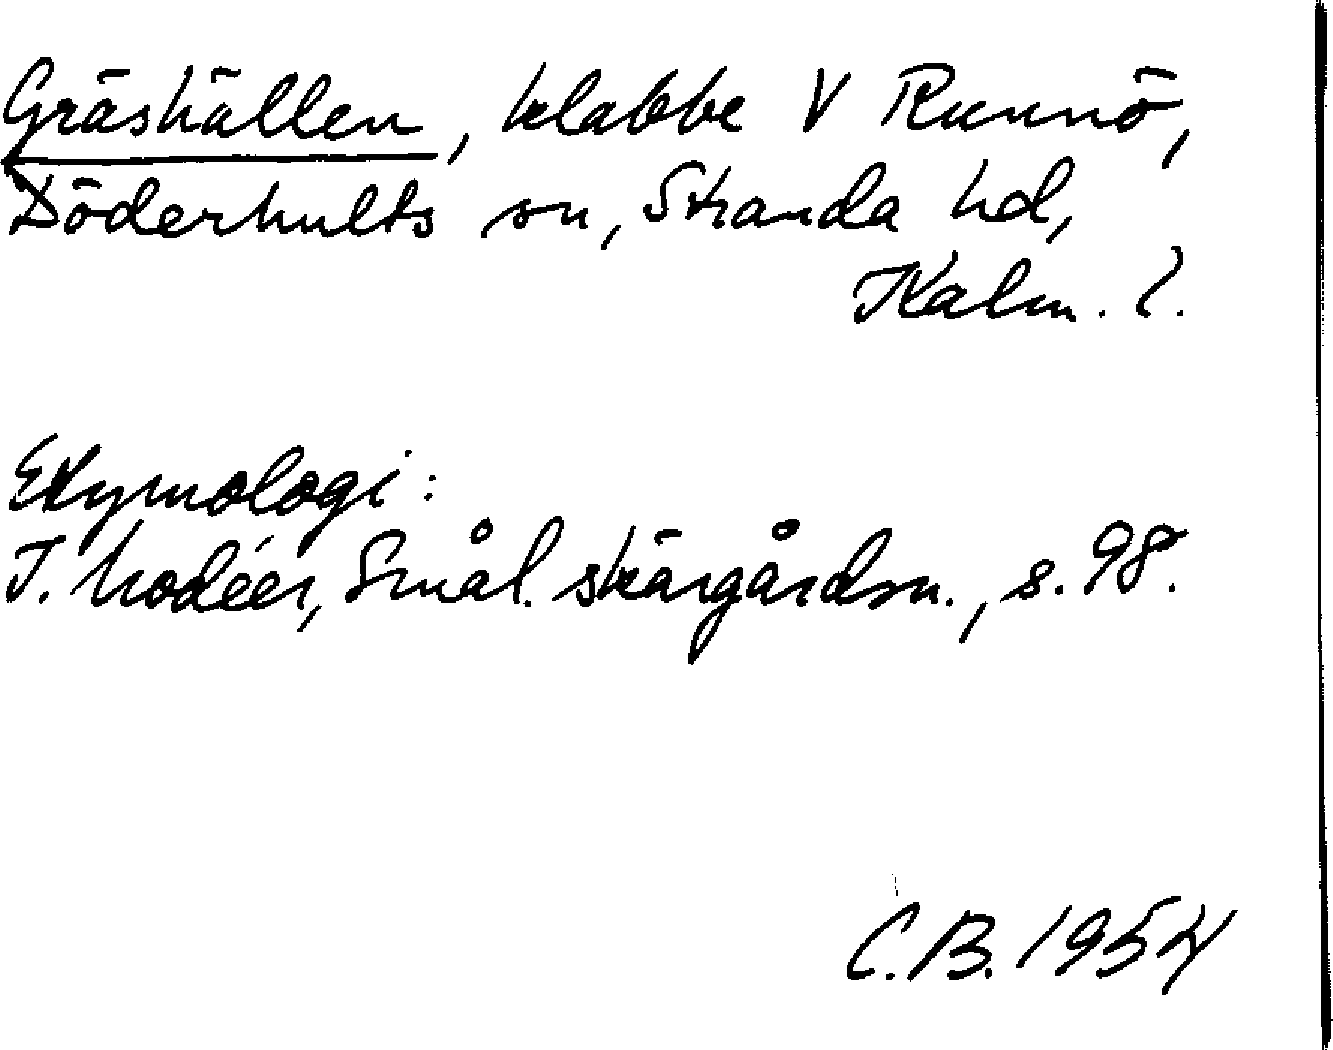 Gräshällen, klabbe V Runnö,
Döderhults sn, Stranda hd,
Kalm. l.
Etymologi:
I. Modéer, Smål. skärgårdsn., s. 98.
C.B. 1954